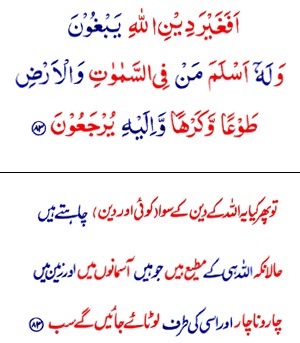 اَفَغَيْرَ دِيْنِ اللّٰهِ يَبْغُوْنَ
وَلَهٗۤ اَسْلَمَ مَنْ فِى السَّمٰوٰتِ وَالْاَرْضِ
طَوْعًا وَّكَرْهًا وَّاِلَيْهِ يُرْجَعُوْنَ ﴿۸۳﴾
تو پھر کیا یہ اللہ کے دین کے سوا (کوئی اور دین) چاہتے ہیں
حالانکہ اللہ ہی کے مطیع ہیں جو ہیں آسمانوں میں اور زمین میں
چار و ناچار اور اسی کی طرف لوٹائے جائیں گے سب ﴿۸۳﴾